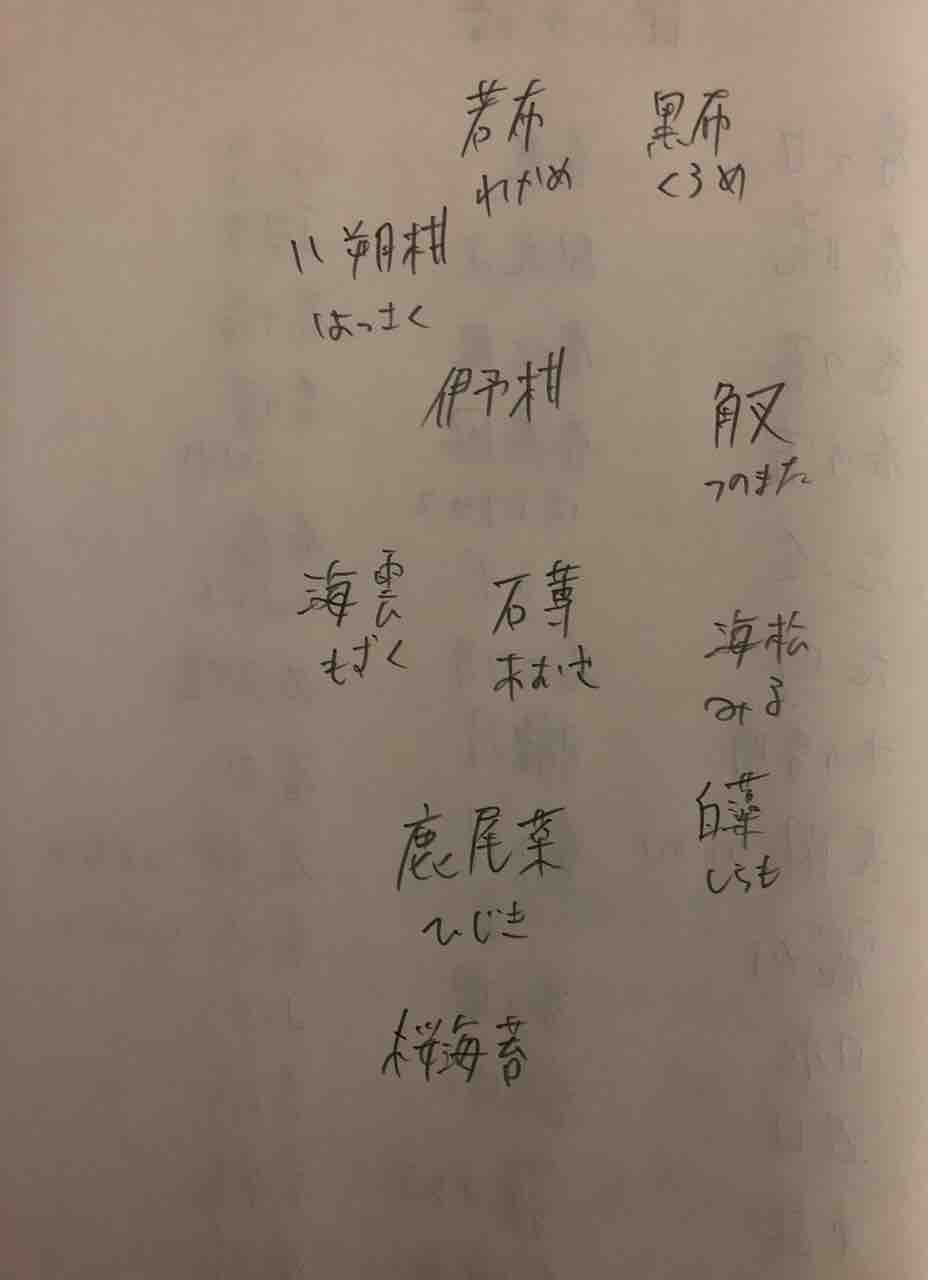 若布 黒布
わかめ くろめ
八朔柑
はっさく
伊予柑
角叉
つのまた
海雲 石蓴
もずく あおさ
海松
みる
鹿尾菜
ひじき
白藻
しらも
桜海苔